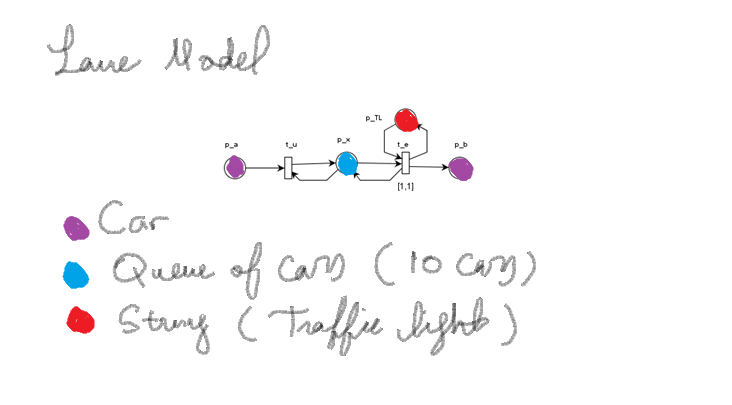 Lane Model
p_TL
p_a t_u p_x t_e p_b
[1,1]
Car
Queue of cars (10 cars)
String (Traffic light)